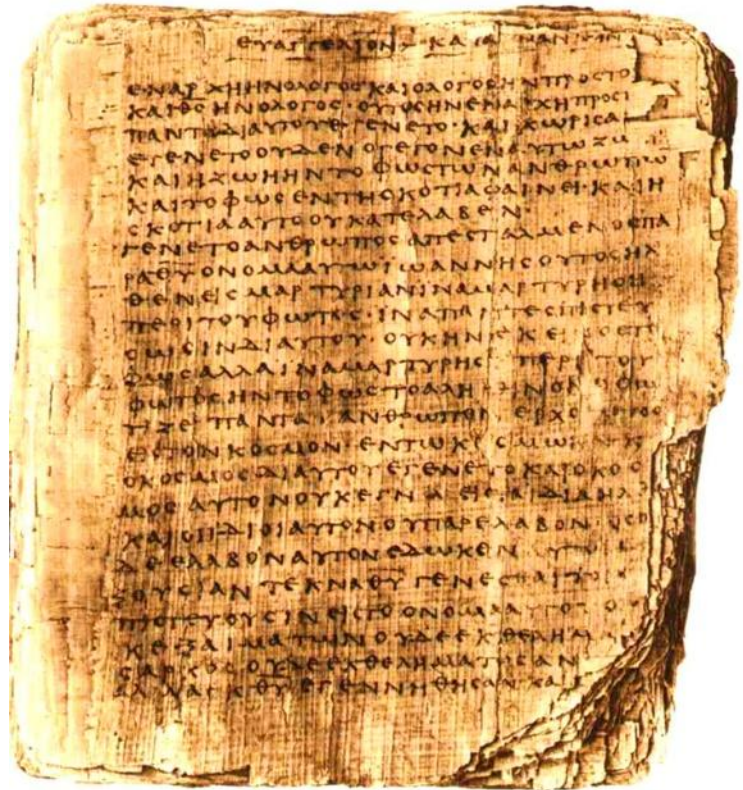 ΕΥΑΓΓΕΛΙΟΝ ΚΑΤΑ
ΕΝΑΡΧΗΗΝΟΛΟΓΟΣΚΑΙΟΛΟΓΟΣΗΝΠΡΟΣΤΟ
ΚΑΙΘΣΗΝΟΛΟΓΟΣ·ΟΥΤΟΣΗΝΕΝΑΡΧΗΠΡΟΣΤ
ΠΑΝΤΑΔΙΑΥΤΟΥΕΓΕΝΕΤΟ·ΚΑΙΧΩΡΙΣΑ
ΕΓΕΝΕΤΟΟΥΔΕΝΟΓΕΓΟΝΕΝΑΥΤΩΖΩ
ΚΑΙΗΖΩΗΗΝΤΟΦΩΣΤΩΝΑΝΘΡΩΠΩ
ΚΑΙΤΟΦΩΣΕΝΤΗΣΚΟΤΙΑΦΑΙΝΕΙ·ΚΑΙΗ
ΣΚΟΤΙΑΑΥΤΟΟΥΚΑΤΕΛΑΒΕΝ·
ΓΕΝΕΤΟΑΝΘΡΩΠΟΣΑΠΕΣΤΑΛΜΕΝΟΣΠΑ
ΡΑΘΥΟΝΟΜΑΑΥΤΩΙΩΑΝΝΗΣΟΥΤΟΣΗΛ
ΘΕΝΕΙΣΜΑΡΤΥΡΙΑΝΙΝΑΜΑΡΤΥΡΗΣΗ
ΠΕΡΙΤΟΥΦΩΤΟΣ·ΙΝΑΠΑΝΤΕΣΠΙΣΤΕΥ
ΣΩΣΙΝΔΙΑΥΤΟΥ·ΟΥΚΗΝΕΚΕΙΝΟΣΤΟ
ΦΩΣΑΛΛΑΙΝΑΜΑΡΤΥΡΗΣΗΠΕΡΙΤΟΥ
ΦΩΤΟΣΗΝΤΟΦΩΣΤΟΑΛΗΘΙΝΟΝΟΦΩ
ΤΙΖΕΙΠΑΝΤΑΑΝΘΡΩΠΟΝΕΡΧΟΜΕΝΟ
ΕΙΣΤΟΝΚΟΣΜΟΝ·ΕΝΤΩΚΟΣΜΩΗΝΚ
ΟΚΟΣΜΟΣΔΙΑΥΤΟΥΕΓΕΝΕΤΟΚΑΙΟΚΟΣ
ΜΟΣΑΥΤΟΝΟΥΚΕΓΝΩΕΙΣΤΑΙΔΙΑΗΛ
ΚΑΙΟΙΙΔΙΟΙΑΥΤΟΝΟΥΠΑΡΕΛΑΒΟΝ·ΟΣΟ
ΔΕΕΛΑΒΟΝΑΥΤΟΝΕΔΩΚΕΝΑΥΤΟΙΣ
ΞΟΥΣΙΑΝΤΕΚΝΑΘΥΓΕΝΕΣΘΑΙΤΟΙΣ
ΠΙΣΤΕΥΟΥΣΙΝΕΙΣΤΟΟΝΟΜΑΑΥΤΟΥΟ
ΚΕΞΑΙΜΑΤΩΝΟΥΔΕΕΚΘΕΛΗΜΑ
ΣΑΡΚΟΣΟΥΔΕΕΚΘΕΛΗΜΑΤΟΣΑΝ
ΑΛΛΑΕΚΘΥΕΓΕΝΝΗΘΗΣΑΝΚΑΙ